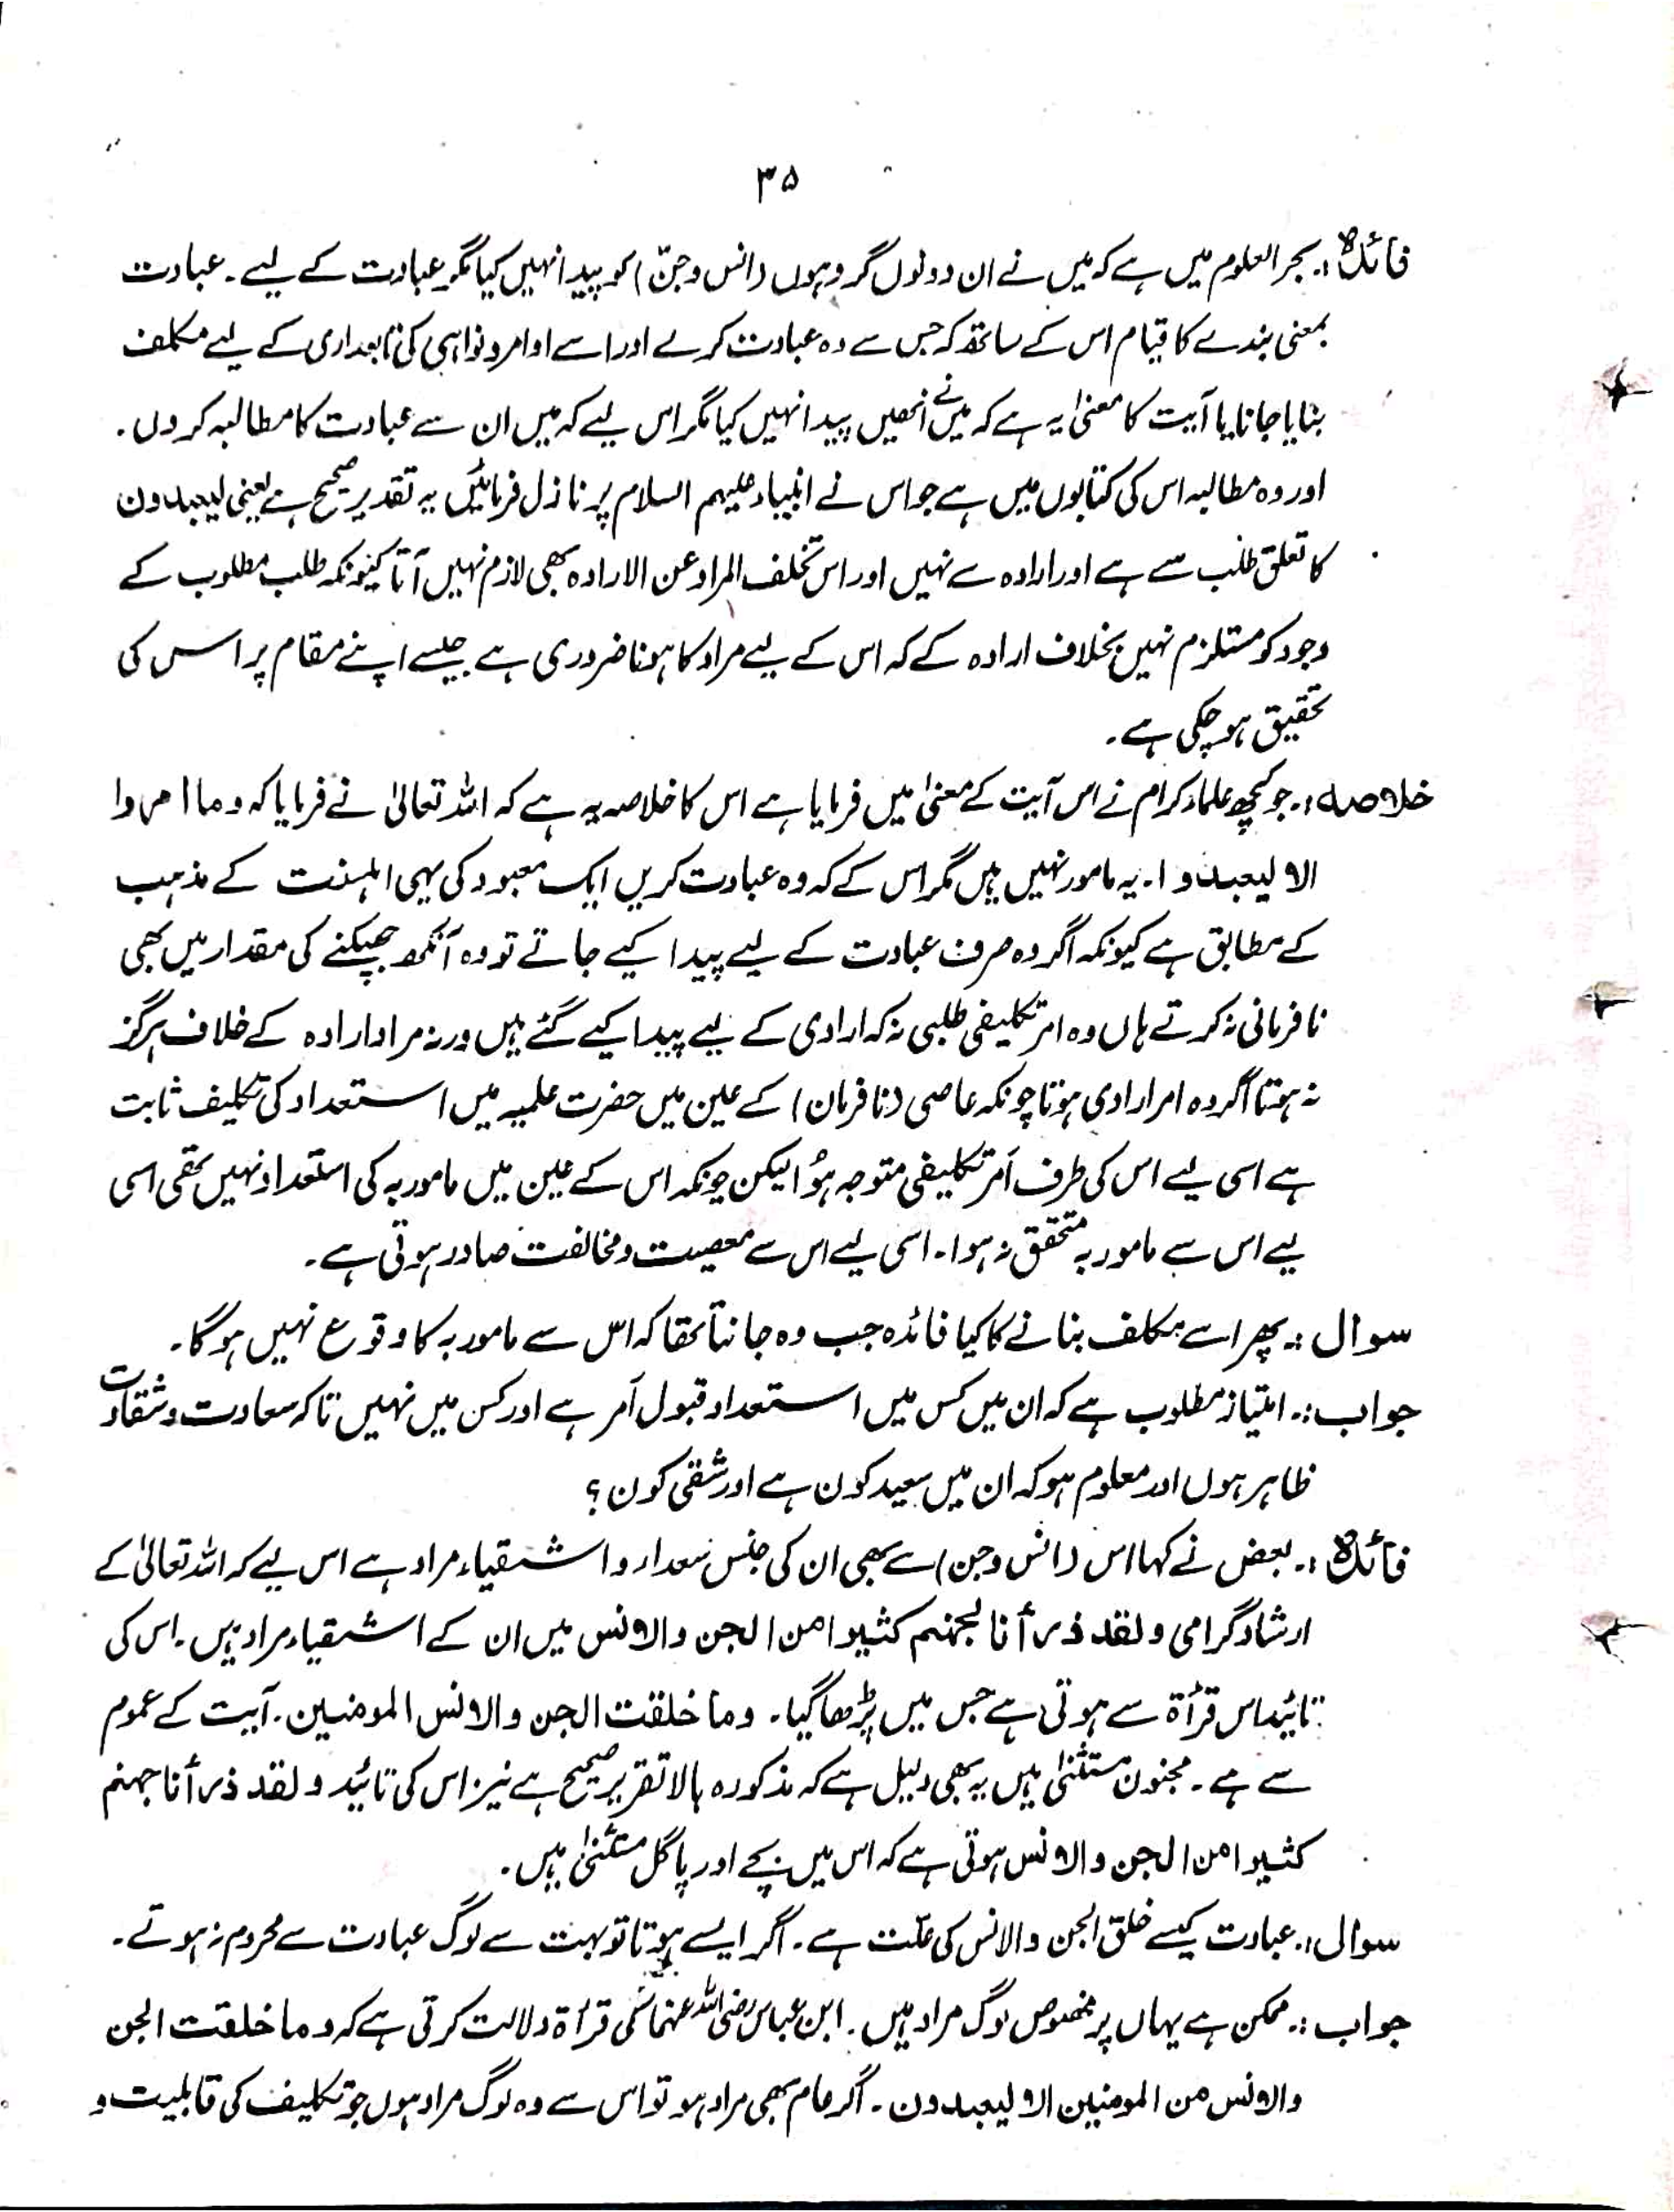 ۳۵
فائدہ :۔ بحر العلوم میں ہے کہ میں نے ان دونوں گروہوں (انس و جنّ) کو پیدا نہیں کیا مگر عبادت کے لیے ۔ عبادت
بمعنی بندے کا قیام اس کے ساتھ کہ جس سے وہ عبادت کرے اور اسے اوامر و نواہی کی تابعداری کے لیے مکلف
بنایا جانا یا آیت کا معنیٰ یہ ہے کہ میں نے انھیں پیدا نہیں کیا مگر اس لیے کہ میں ان سے عبادت کا مطالبہ کروں .
اور وہ مطالبہ اس کی کتابوں میں ہے جو اس نے انبیاء علیہم السلام پر نازل فرمائیں یہ تقدیر صحیح ہے یعنی لیعبدون
کا تعلق طلب سے ہے اور ارادہ سے نہیں اور اس تخلف المراد عن الارادہ بھی لازم نہیں آتا کیونکہ طلب مطلوب کے
وجود کو مستلزم نہیں بخلاف ارادہ کے کہ اس کے لیے مراد کا ہونا ضروری ہے جیسے اپنے مقام پر اس کی
تحقیق ہو چکی ہے ۔
خلاصہ :۔ جو کچھ علماء کرام نے اس آیت کے معنیٰ میں فرمایا ہے اس کا خلاصہ یہ ہے کہ اللہ تعالیٰ نے فرمایا کہ وما امروا
الا لیعبدوا ۔ یہ مامور نہیں ہیں مگر اس کے کہ وہ عبادت کریں ایک معبود کی یہی اہلسنت کے مذہب
کے مطابق ہے کیونکہ اگر وہ صرف عبادت کے لیے پیدا کیے جاتے تو وہ آنکھ جھپکنے کی مقدار میں بھی
نافرمانی نہ کرتے ہاں وہ امر تکلیفی طلبی نہ کہ ارادی کے لیے پیدا کیے گئے ہیں ورنہ مراد ارادہ کے خلاف ہرگز
نہ ہوتا اگر وہ امر ارادی ہوتا چونکہ عاصی (نافرمان) کے عین میں حضرت علمیہ میں استعداد کی تکلیف ثابت
ہے اسی لیے اس کی طرف اَمر تکلیفی متوجہ ہُوا لیکن چونکہ اس کے عین میں مامور بہ کی استعداد نہیں تھی اسی
لیے اس سے مامور بہ متحقق نہ ہوا ۔ اسی لیے اس سے معصیت و مخالفت صادر ہوتی ہے ۔
سوال :۔ پھر اسے مکلف بنانے کا کیا فائدہ جب وہ جانتا تھا کہ اس سے مامور بہ کا وقوع نہیں ہوگا ۔
جواب :۔ امتیاز مطلوب ہے کہ ان میں کس میں استعداد قبول اَمر ہے اور کس میں نہیں تاکہ سعادت و شقاوت
ظاہر ہوں اور معلوم ہو کہ ان میں سعید کون ہے اور شقی کون ؟
فائدہ :۔ بعض نے کہا اس (انس و جن) سے بھی ان کی جنس سعداء و اشقیاء مراد ہے اس لیے کہ اللہ تعالیٰ کے
ارشاد گرامی ولقد ذرأنا لجہنم کثیرا من الجن والانس میں ان کے اشقیاء مراد ہیں . اس کی
تائید اس قرأۃ سے ہوتی ہے جس میں پڑھا گیا ۔ وما خلقت الجن والانس المومنین ۔ آیت کے عموم
سے ہے ۔ مجنون مستثنیٰ ہیں یہ بھی دلیل ہے کہ مذکورہ بالا تقریر صحیح ہے نیز اس کی تائید ولقد ذرأنا جہنم
کثیرا من الجن والانس ہوتی ہے کہ اس میں بچے اور پاگل مستثنیٰ ہیں .
سوال :۔ عبادت کیسے خلق الجن والانس کی علّت ہے ۔ اگر ایسے ہوتا تو بہت سے لوگ عبادت سے محروم نہ ہوتے ۔
جواب :۔ ممکن ہے یہاں پر مخصوص لوگ مراد ہیں . ابن عباس رضی اللہ عنہما کی قرأۃ دلالت کرتی ہے کہ وما خلقت الجن
والانس من المومنین الا لیعبدون ۔ اگر عام بھی مراد ہو تو اس سے وہ لوگ مراد ہوں جو تکلیف کی قابلیت و